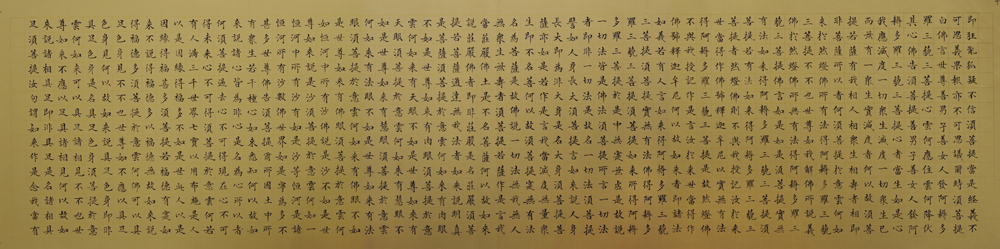 即狂亂狐疑不信須菩提當是經義不
可思議果報亦不可思議爾時須菩提
白佛言世尊善男子善女人發阿耨多
羅三藐三菩提心云何應住云何降伏
其心佛告須菩提善男子善女人發阿
耨多羅三藐三菩提心者當生如是心
我應滅度一切眾生滅度一切眾生已
而無有一眾生實滅度者何以故須菩
提若菩薩有我相人相眾生相壽者相即
非菩薩所以者何須菩提實無有法發阿
耨多羅三藐三菩提心者須菩提於意云何如
來於然燈佛所有法得阿耨多羅三藐三
菩提不不也世尊如我解佛所說義
佛於然燈佛所無有法得阿耨多羅三藐
三菩提佛言如是如是須菩提實無
有法如來得阿耨多羅三藐三菩提須
菩提若有法如來得阿耨多羅三藐三
菩提者然燈佛則不與我授記汝於來
世當得作佛號釋迦牟尼以實無有法
得阿耨多羅三藐三菩提是故然燈佛
與我授記作是言汝於來世當得作
佛號釋迦牟尼何以故如來者即諸法
如義若有人言如來得阿耨多羅
三藐三菩提須菩提實無有法佛得阿耨
多羅三藐三菩提須菩提如來所得阿耨多羅
三藐三菩提於是中無實無虛是故如來說
一切法皆是佛法須菩提所言一切法
者即非一切法是故名一切法須菩提
譬如人身長大須菩提言如來說人身
長大即為非大身是名大身須菩提菩
薩亦如是若作是言我當滅度無量眾
生即不名菩薩何以故須菩提實無有法
名為菩薩是故佛說一切法無我無人
無眾生無壽者須菩提若菩薩作是言我
當莊嚴佛土是不名菩薩何以故如來
說莊嚴佛土者即非莊嚴是名莊嚴須菩
提若菩薩通達無我法者如來說名真
是菩薩須菩提於意云何如來有肉眼
不如是世尊如來有肉眼須菩提於意
云何如來有天眼不如是世尊如來有
天眼須菩提於意云何如來有慧眼不
如是世尊如來有慧眼須菩提於意云
何如來有法眼不如是世尊如來有法
眼須菩提於意云何如來有佛眼不如
是世尊如來有佛眼須菩提於意云何
如恒河中所有沙佛說是沙不如是世
尊如來說是沙須菩提於意云何如一
恒河中所有沙有如是等恒河是諸
恒河所有沙數佛世界如是寧為多不
甚多世尊佛告須菩提爾所國土中所
有眾生若干種心如來悉知何以故如
來說諸心皆為非心是名為心所以者
何須菩提過去心不可得現在心不可
得未來心不可得須菩提於意云何若
有人滿三千大千世界七寶以用布施是人
以是因緣得福多不如是世尊此人以是
因緣得福甚多須菩提若福德有實如
來不說得福德多以福德無故如來說
得福德多須菩提於意云何佛可以具
足色身見不不也世尊如來不應以具
足色身見何以故如來說具足色身即
非具足色身是名具足色身須菩提於意
云何如來可以具足諸相見不不也世
尊如來不應以具足諸相見何以故如
來說諸相具足即非具足是名諸相具
足須菩提汝勿謂如來作是念我當有